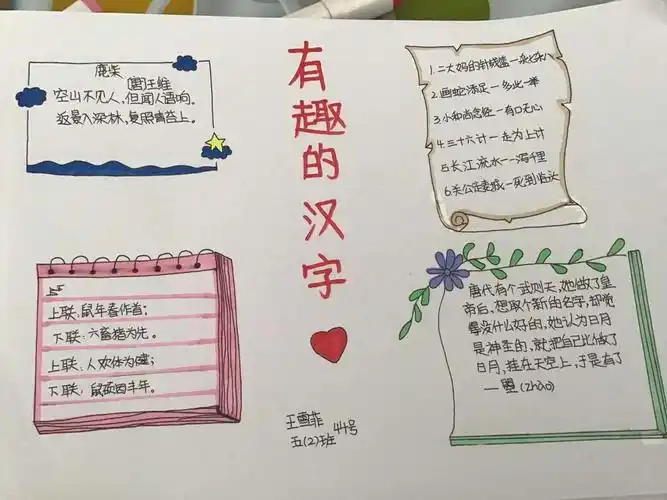 有趣的汉字
鹿柴
[唐]王维
空山不见人，但闻人语响。
返景入深林，复照青苔上。
1.二大妈的针线篮一
2.画蛇添足一多此一举
3.小和尚念经一有口无心
4.三十六计一走为上计
5.长江流水一一泻千里
6.关公走麦城一死到临头
上联：鼠年春作首；
下联：六畜猪为先。
上联：人欢体为健；
下联：鼠硕因丰年。
唐代有个武则天，她做了皇
帝后，想取个新的名字，却觉
得没什么好的，她认为日月
是神圣的，就把自己比做了
日月，挂在天空上，于是有了
一曌(zhào)
王雪菲
五(2)班 44号